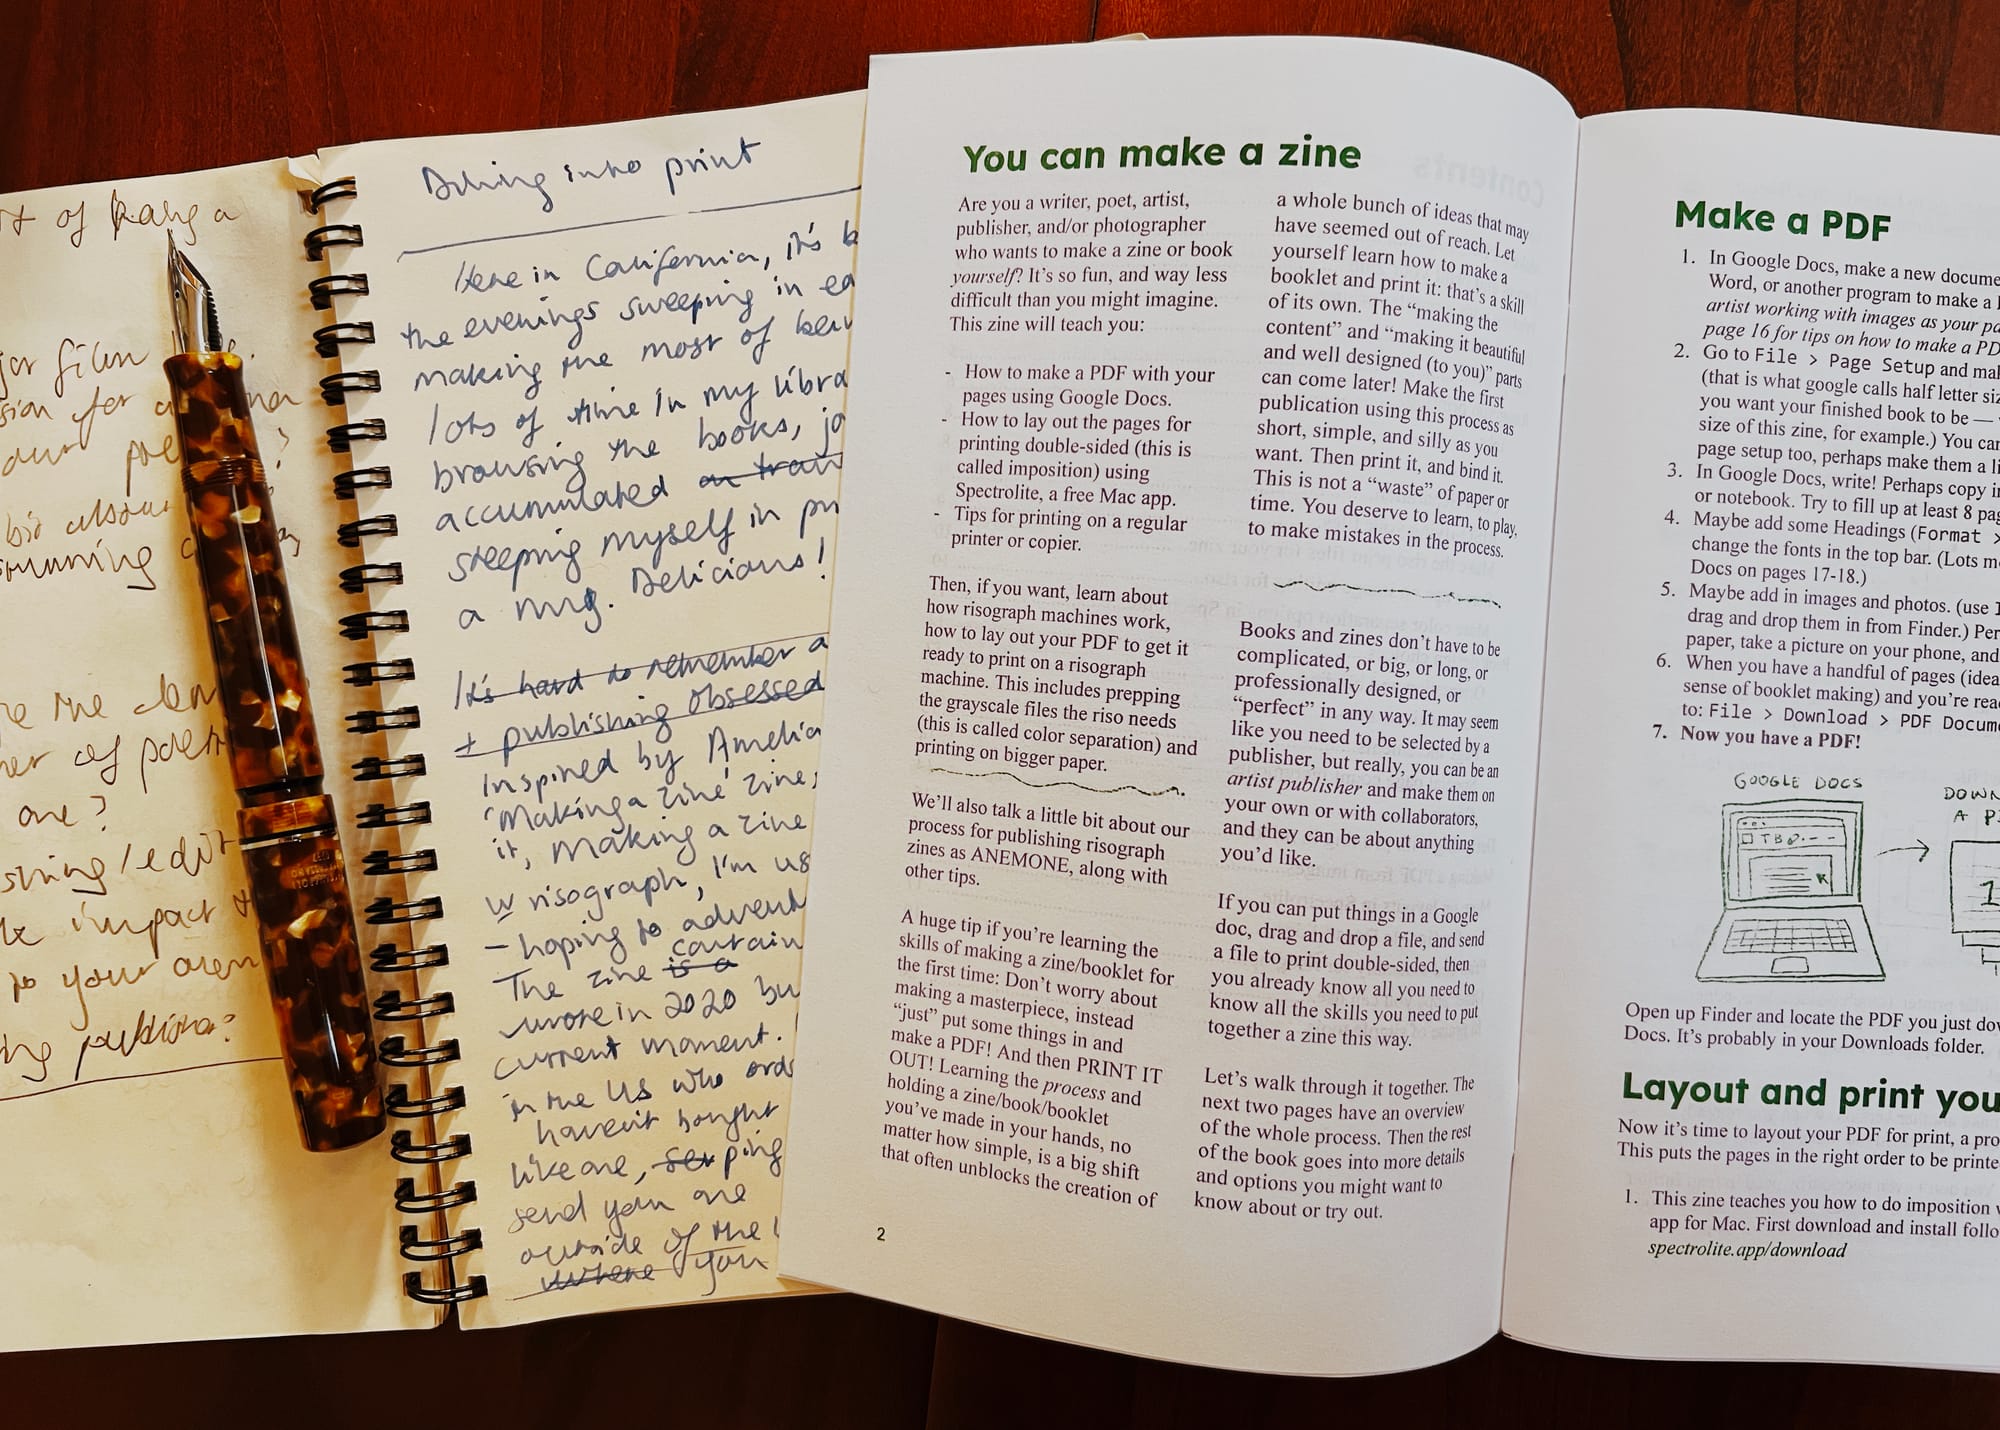 of
film
for
?
the
of
one?
impact
to your own
?
into print
Here in California, it's
the evenings sweeping in
making the most of
lots of time in my
browsing the books,
accumulated
steeping myself in
a mug. Delicious!
It's hard to remember a
+ publishing obsessed
Inspired by Amelia
'Making a zine' zine,
it, making a zine
w risograph, I'm
- hoping to
contain
The zine is a
wrote in 2020
current moment.
in the US who
haven't bought
like one, ping
send you one
outside of the
where you
You can make a zine
Are you a writer, poet, artist,
publisher, and/or photographer
who wants to make a zine or book
yourself? It's so fun, and way less
difficult than you might imagine.
This zine will teach you:
- How to make a PDF with your
pages using Google Docs.
- How to lay out the pages for
printing double-sided (this is
called imposition) using
Spectrolite, a free Mac app.
- Tips for printing on a regular
printer or copier.
Then, if you want, learn about
how risograph machines work,
how to lay out your PDF to get it
ready to print on a risograph
machine. This includes prepping
the grayscale files the riso needs
(this is called color separation) and
printing on bigger paper.
We'll also talk a little bit about our
process for publishing risograph
zines as ANEMONE, along with
other tips.
A huge tip if you're learning the
skills of making a zine/booklet for
the first time: Don't worry about
making a masterpiece, instead
"just" put some things in and
make a PDF! And then PRINT IT
OUT! Learning the process and
holding a zine/book/booklet
you've made in your hands, no
matter how simple, is a big shift
that often unblocks the creation of
2
a whole bunch of ideas that may
have seemed out of reach. Let
yourself learn how to make a
booklet and print it: that's a skill
of its own. The "making the
content" and "making it beautiful
and well designed (to you)" parts
can come later! Make the first
publication using this process as
short, simple, and silly as you
want. Then print it, and bind it.
This is not a "waste" of paper or
time. You deserve to learn, to play,
to make mistakes in the process.
Books and zines don't have to be
complicated, or big, or long, or
professionally designed, or
"perfect" in any way. It may seem
like you need to be selected by a
publisher, but really, you can be an
artist publisher and make them on
your own or with collaborators,
and they can be about anything
you'd like.
If you can put things in a Google
doc, drag and drop a file, and send
a file to print double-sided, then
you already know all you need to
know all the skills you need to put
together a zine this way.
Let's walk through it together. The
next two pages have an overview
of the whole process. Then the rest
of the book goes into more details
and options you might want to
know about or try out.
Make a PDF
1. In Google Docs, make a new docume
Word, or another program to make a
artist working with images as your pa
page 16 for tips on how to make a PD
2. Go to File > Page Setup and mak
(that is what google calls half letter siz
you want your finished book to be —
size of this zine, for example.) You can
page setup too, perhaps make them a li
3. In Google Docs, write! Perhaps copy in
or notebook. Try to fill up at least 8 pag
4. Maybe add some Headings (Format >
change the fonts in the top bar. (Lots m
Docs on pages 17-18.)
5. Maybe add in images and photos. (use
drag and drop them in from Finder.) Per
paper, take a picture on your phone, and
6. When you have a handful of pages (idea
sense of booklet making) and you're rea
to: File > Download > PDF Docum
7. Now you have a PDF!
GOOGLE DOCS
DOWN
A P
T B
1
Open up Finder and locate the PDF you just do
Docs. It's probably in your Downloads folder.
Layout and print you
Now it's time to layout your PDF for print, a pro
This puts the pages in the right order to be printe
1. This zine teaches you how to do imposition
app for Mac. First download and install follo
spectrolite.app/download